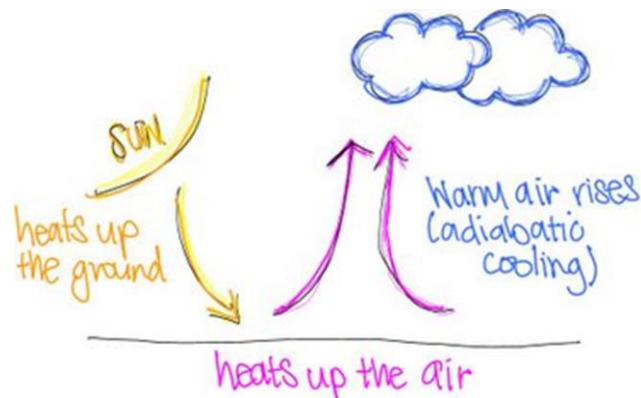 sun
heats up
the ground
Warm air rises
(adiabatic
cooling)
heats up the air